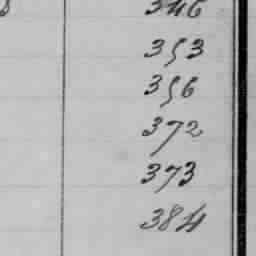 346
353
356
372
373
384